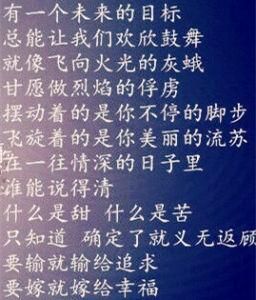 有一个未来的目标
总能让我们欢欣鼓舞
就像飞向火光的灰蛾
甘愿做烈焰的俘虏
摆动着的是你不停的脚步
飞旋着的是你美丽的流苏
在一往情深的日子里
谁能说得清
什么是甜 什么是苦
只知道 确定了就义无返顾
要输就输给追求
要嫁就嫁给幸福